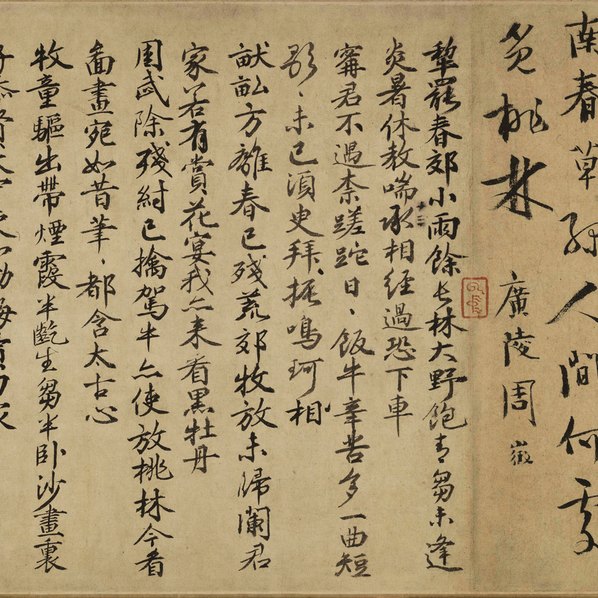 南春草緑人間何處
覓桃林
廣陵周
犂罷春郊小雨餘長林大野飽青芻未逢
炎暑休教喘丞相經過恐下車
甯君不遇柰蹉跎日〻飯牛辛苦多一曲短
歌〻未已須臾拜抠鳴珂相
畎畝方離春已殘荒郊牧放未歸闌君
家若有賞花宴我亦来看黒牡丹
周武除殘紂已擒駕牛亦使放桃林今看
畫宛如昔筆〻都含太古心
牧童驅出帶煙霞半齕生芻半卧沙畫裏